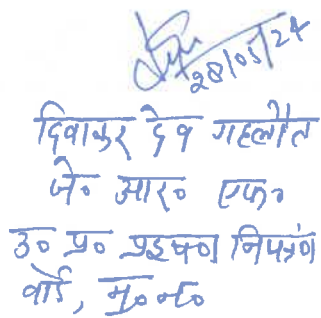 28/05/24
दिवाकर देव गहलौत
जे० आर० एफ०
उ० प्र० प्रदूषण नियंत्रण
बोर्ड, मु०न०